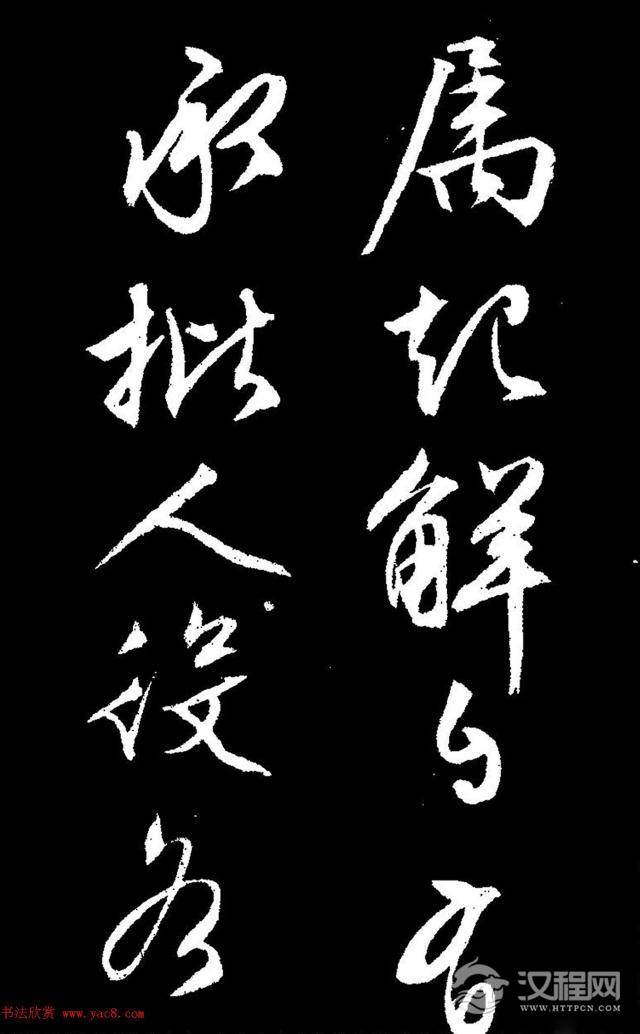 属起解自有
承批人役各
书法欣赏 www.yac8.com
汉程网
WWW.HTTPCN.COM